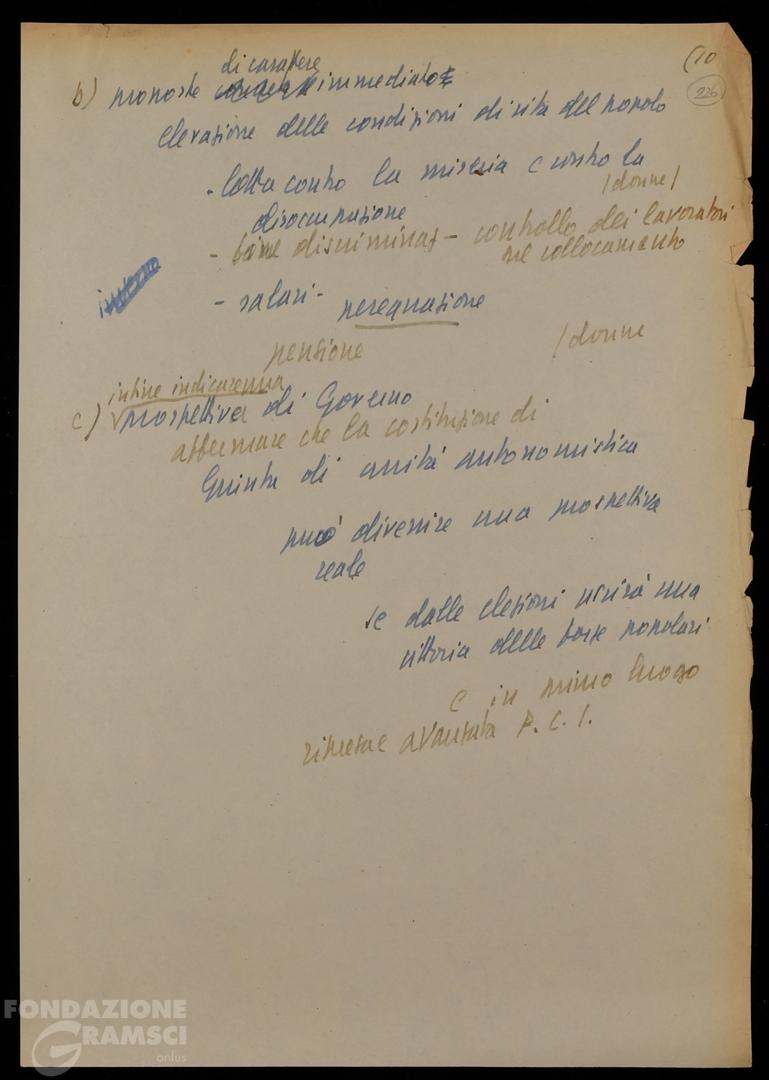 (10
226
di carattere
b) proposte immediato
elevazione delle condizioni di vita del popolo
- lotta contro la miseria e contro la
/donne/
disoccupazione
- fine discriminaz - controllo dei lavoratori
nel collocamento
- salari - perequazione
pensione /donne
infine indicare una
c) prospettiva di Governo
affermare che la costituzione di
Giunta di unità autonomistica
può divenire una prospettiva
reale
se dalle elezioni uscirà una
vittoria delle forze popolari
e in primo luogo
avanzata P.C.I.
FONDAZIONE
GRAMSCI
onlus